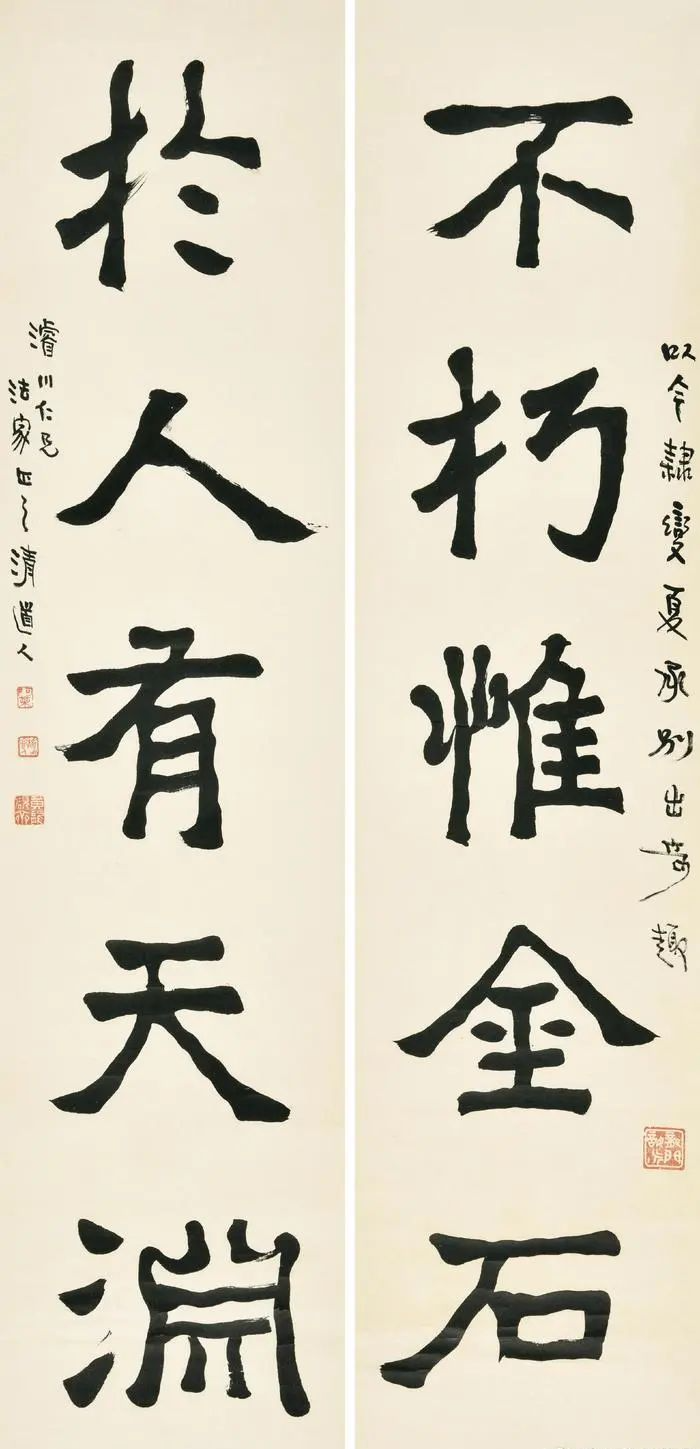 不朽惟金石
以今隸變夏承別出奇趣
於人有天淵
濬川仁兄
法家正之 清道人